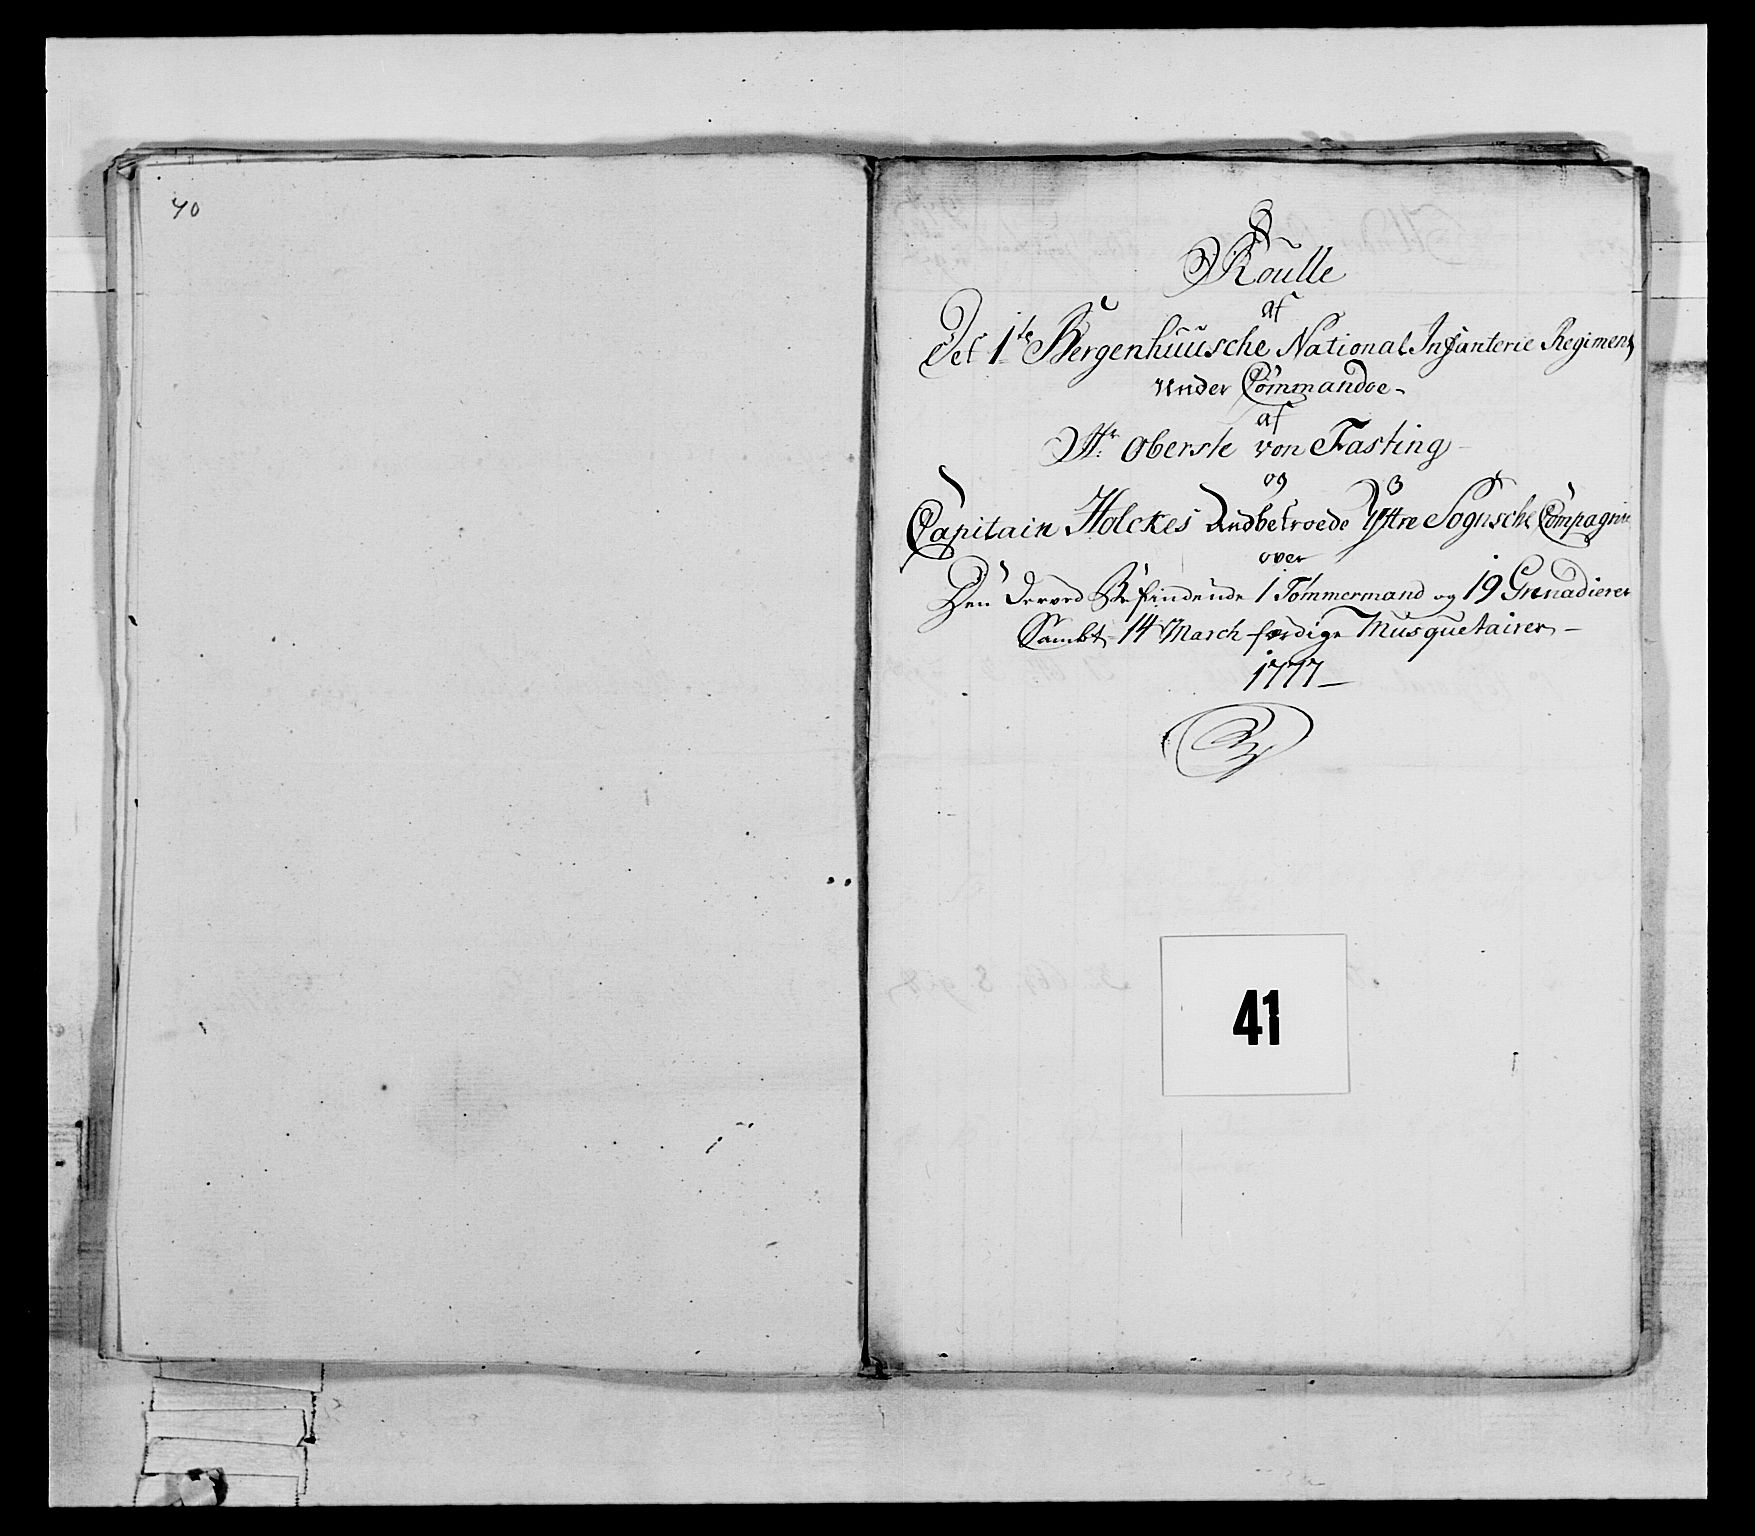 40
Roulle
af
Det 1te Bergenhuusche National Infanterie Regiment
under Commandoe
af
Hr Oberste von Fasting
og
Capitain Holckes Andbetroede Yttre Sognsche Compagnie
over
Den derved Befindende 1 Tømmermand og 19 Grenadierer
Sambt 14 March færdige Musquetairer
1777
41